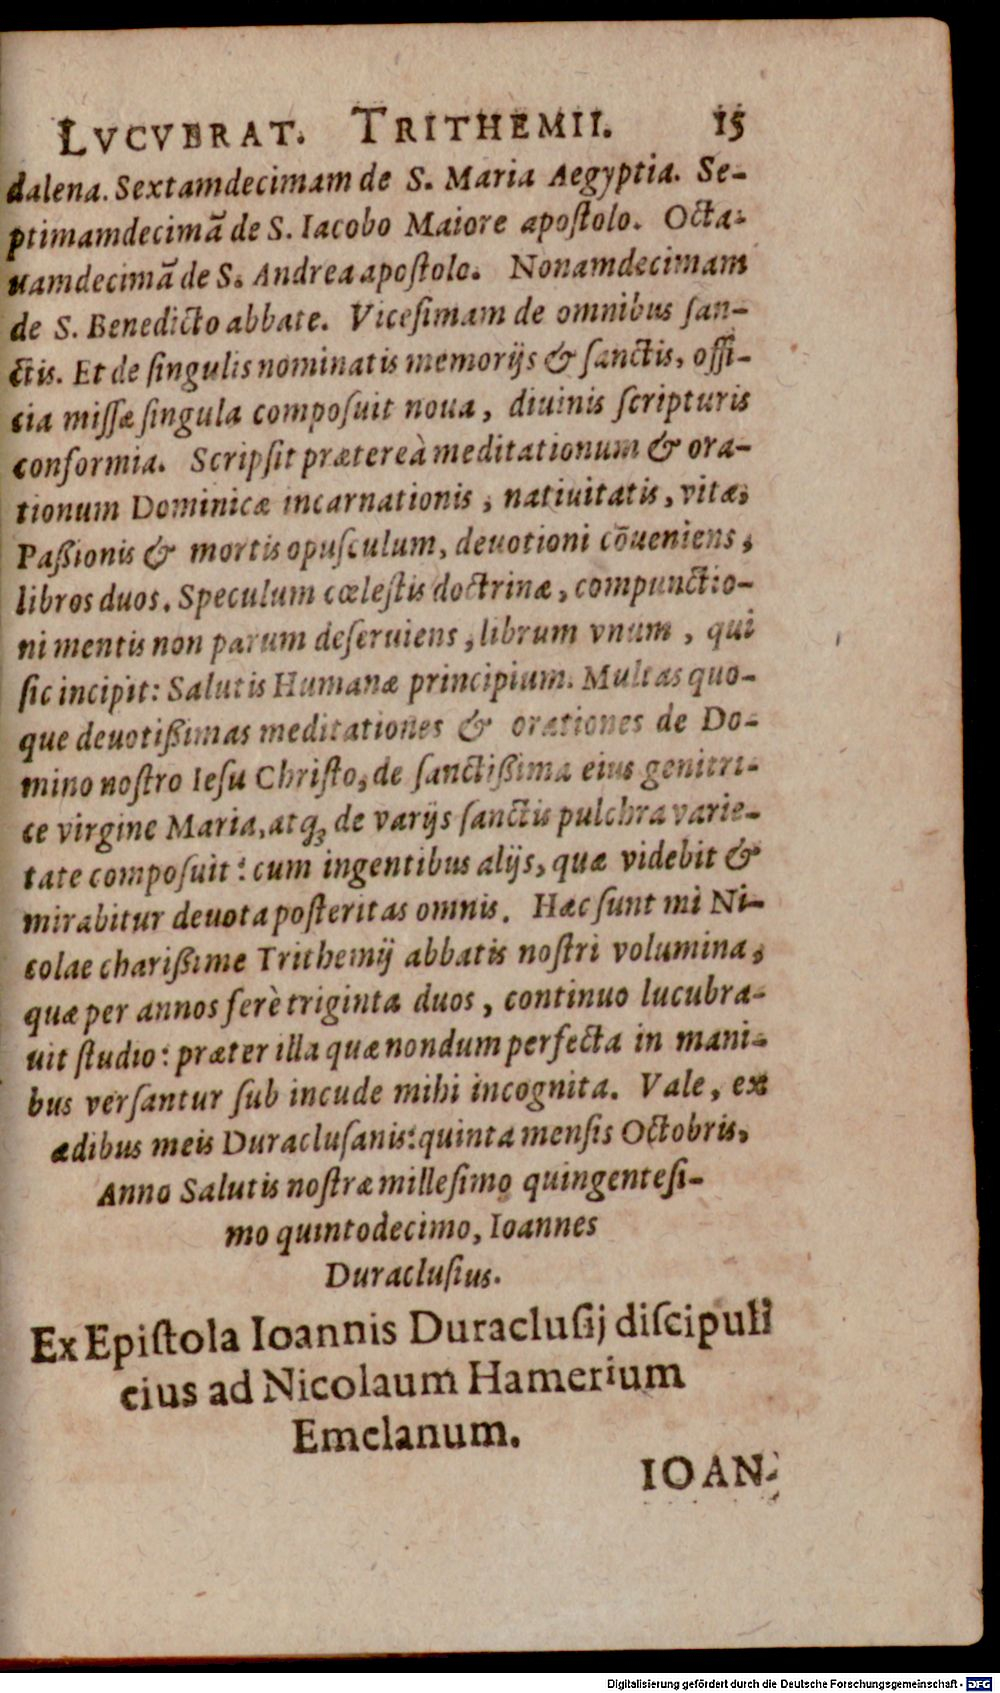 LVCVBRAT. TRITHEMII. 15
dalena. Sextamdecimam de S. Maria Aegyptia. Se-
ptimamdecimã de S. Iacobo Maiore apoſtolo. Octa-
uamdecimã de S. Andrea apoſtolo. Nonamdecimam
de S. Benedicto abbate. Viceſimam de omnibus ſan-
ctis. Et de ſingulis nominatis memorijs & ſanctis, offi-
cia miſſæ ſingula compoſuit noua, diuinis ſcripturis
conformia. Scripſit prætereà meditationum & ora-
tionum Dominicæ incarnationis, natiuitatis, vitæ,
Paßionis & mortis opuſculum, deuotioni cõueniens,
libros duos. Speculum cœleſtis doctrinæ, compunctio-
ni mentis non parum deſeruiens, librum vnum, qui
ſic incipit: Salutis Humanæ principium. Multas quo-
que deuotißimas meditationes & orationes de Do-
mino noſtro Ieſu Chriſto, de ſanctißima eius genitri-
ce virgine Maria, atq; de varijs ſanctis pulchra varie-
tate compoſuit: cum ingentibus alijs, quæ videbit &
mirabitur deuota poſteritas omnis. Hæc ſunt mi Ni-
colae charißime Trithemij abbatis noſtri volumina,
quæ per annos ferè triginta duos, continuo lucubra-
uit ſtudio: præter illa quæ nondum perfecta in mani-
bus verſantur ſub incude mihi incognita. Vale, ex
ædibus meis Duracluſanis: quinta menſis Octobris,
Anno Salutis noſtræ milleſimo quingenteſi-
mo quintodecimo, Ioannes
Duracluſius.
Ex Epiſtola Ioannis Duracluſij diſcipuli
eius ad Nicolaum Hamerium
Emelanum.
IOAN-
Digitalisierung gefördert durch die Deutsche Forschungsgemeinschaft - DFG